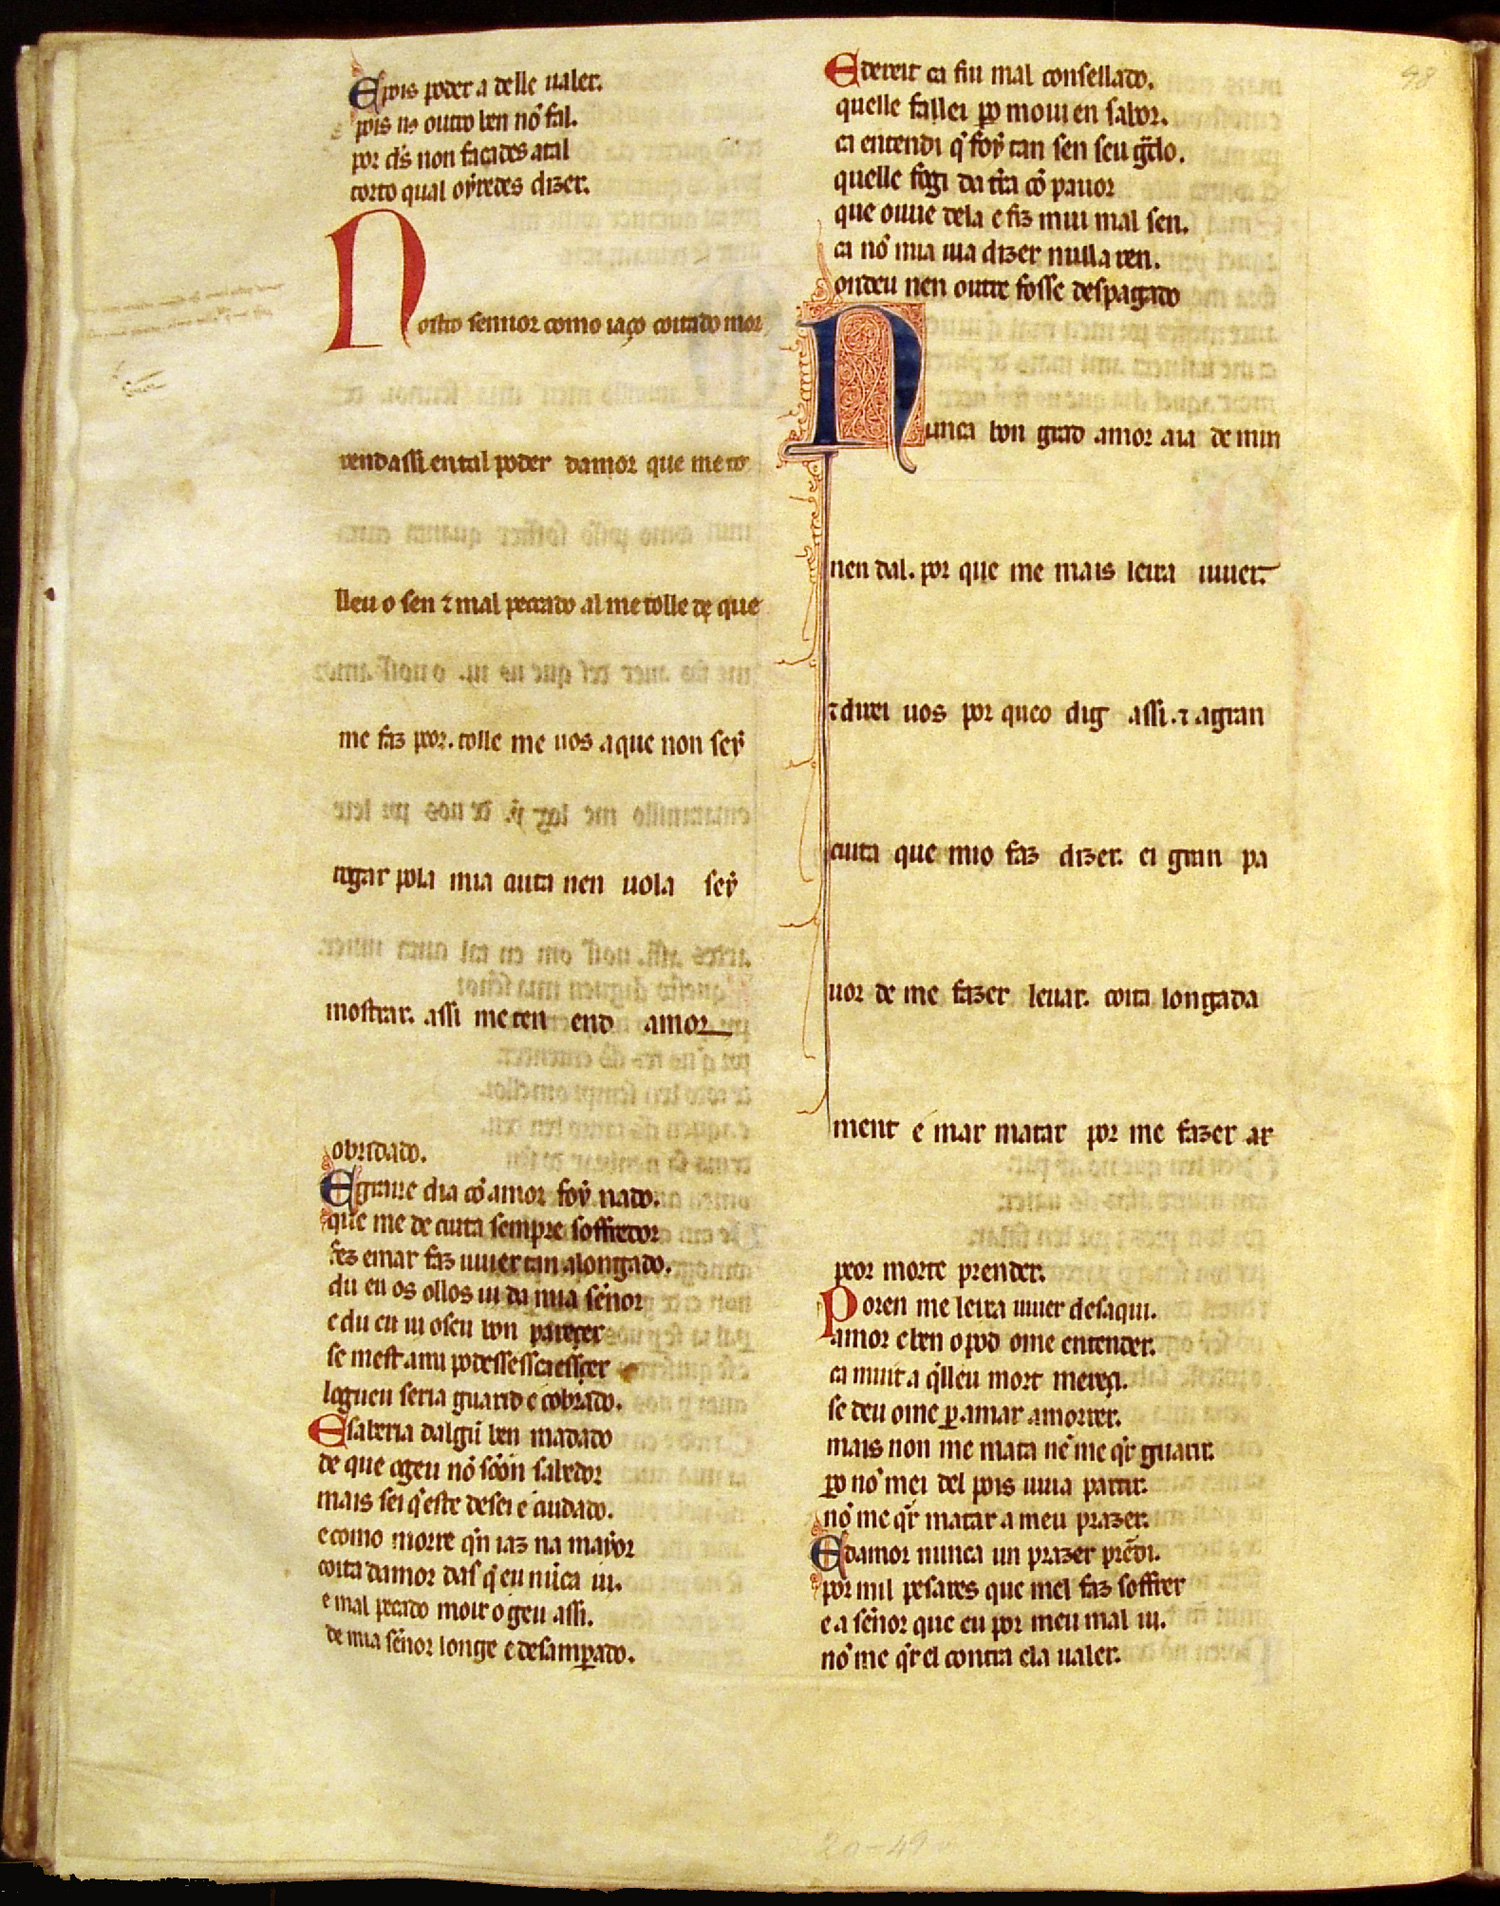 E pois poder a delle ualer.
pois uꝰ outro ben nõ fal.
por dʼs non façades atal
torto qual oyredes dizer.
Nostro sennor como iaço coitado mor
rendassi en tal poder damor que me to
lleu o sen ⁊ mal peccado al me tolle de que
me faz peor. tolle me uos a que non seẏ
rogar pola mia cuita nen uola seẏ
mostrar. assi me ten end amor
obridado.
E graue dia cõ amor foẏ nado.
que me de cuita sempre soffredor
fez e mar faz uiuer tan alongado.
du eu os ollos ui da mia señor
e du eu ui o seu bon pareçer
se mest a mi podess escaeeçer
logueu seria guarid e cobrado.
E saberia dalgũ ben mãdado
de que ogeu nõ sõõn sabedor
mais sei q̃ este desei e cuidado.
e como morre q̃n iaz na mayor
coita damor das q̃ eu nũca ui.
e mal peccado moir ogeu assi.
de mia señor longe e desamꝑado.
E dereit ei ca fiu mal consellado.
quelle fallei ꝑo mouu en sabor.
ca entendi q̃ foẏ tan sen seu gͣdo.
quelle fogi da tr̃a cõ pauor
que ouue dela e fiz mui mal sen.
ca nõ mia uia dizer nulla ren.
ondeu nen outre fosse despagado
Nunca bon grad amor aia de min
nen dal. por que me mais leixa uiuer.
⁊ direi uos por queo dig assi. ⁊ a gran
cuita que mio faz dizer. ei gran pa
uor de me fazer leuar. coita longada
ment e mar matar por me fazer ar
peor morte prender.
Poren me leixa uiuer desaqui.
amor e ben o pod ome entender.
ca muit a q̃lleu mort mereçi.
se deu ome ꝑ amar a morrer.
mais non me mata nẽ me q̃r guarir.
ꝑo nõ mei del pois uiua partir.
nõ me q̃r matar a meu prazer.
E damor nunca un prazer prẽdi.
por mil pesares que mel faz soffrer
e a señor que eu por meu mal ui.
nõ me q̃r el contra ela ualer.
98
20-49